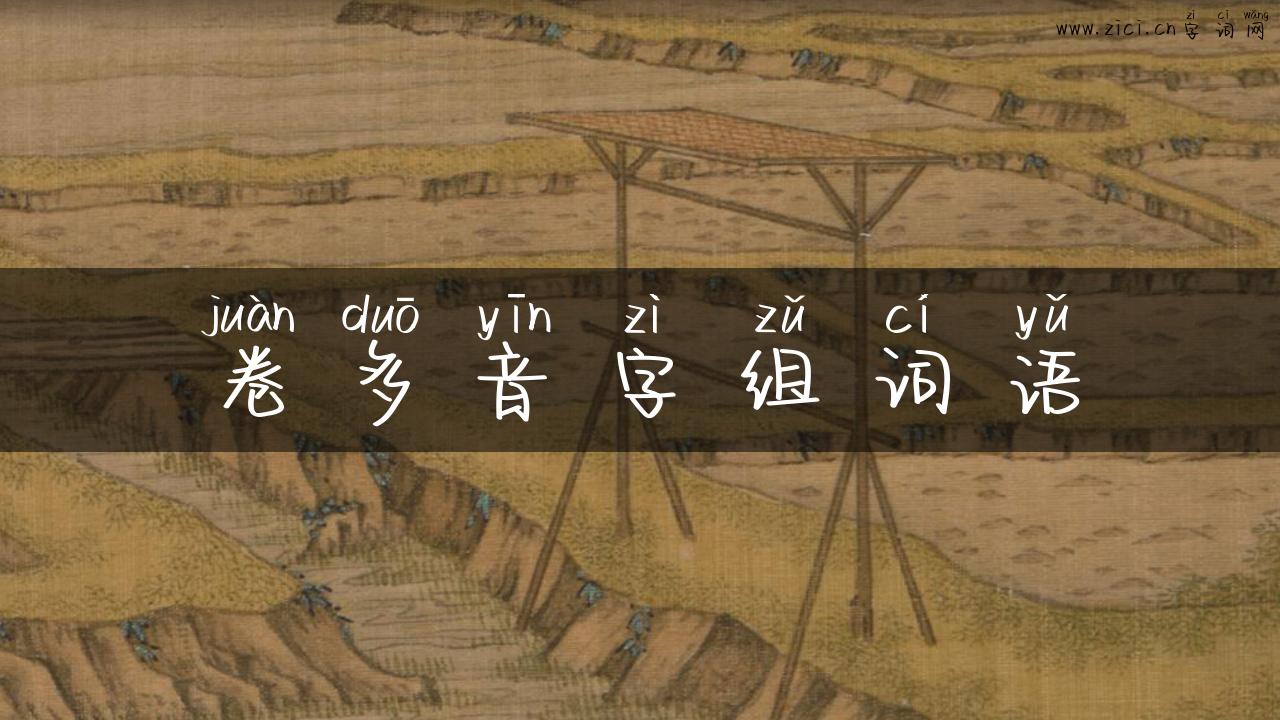 zì cí wǎng
www.zici.cn 字 词 网
juàn duō yīn zì zǔ cí yǔ
卷 多 音 字 组 词 语